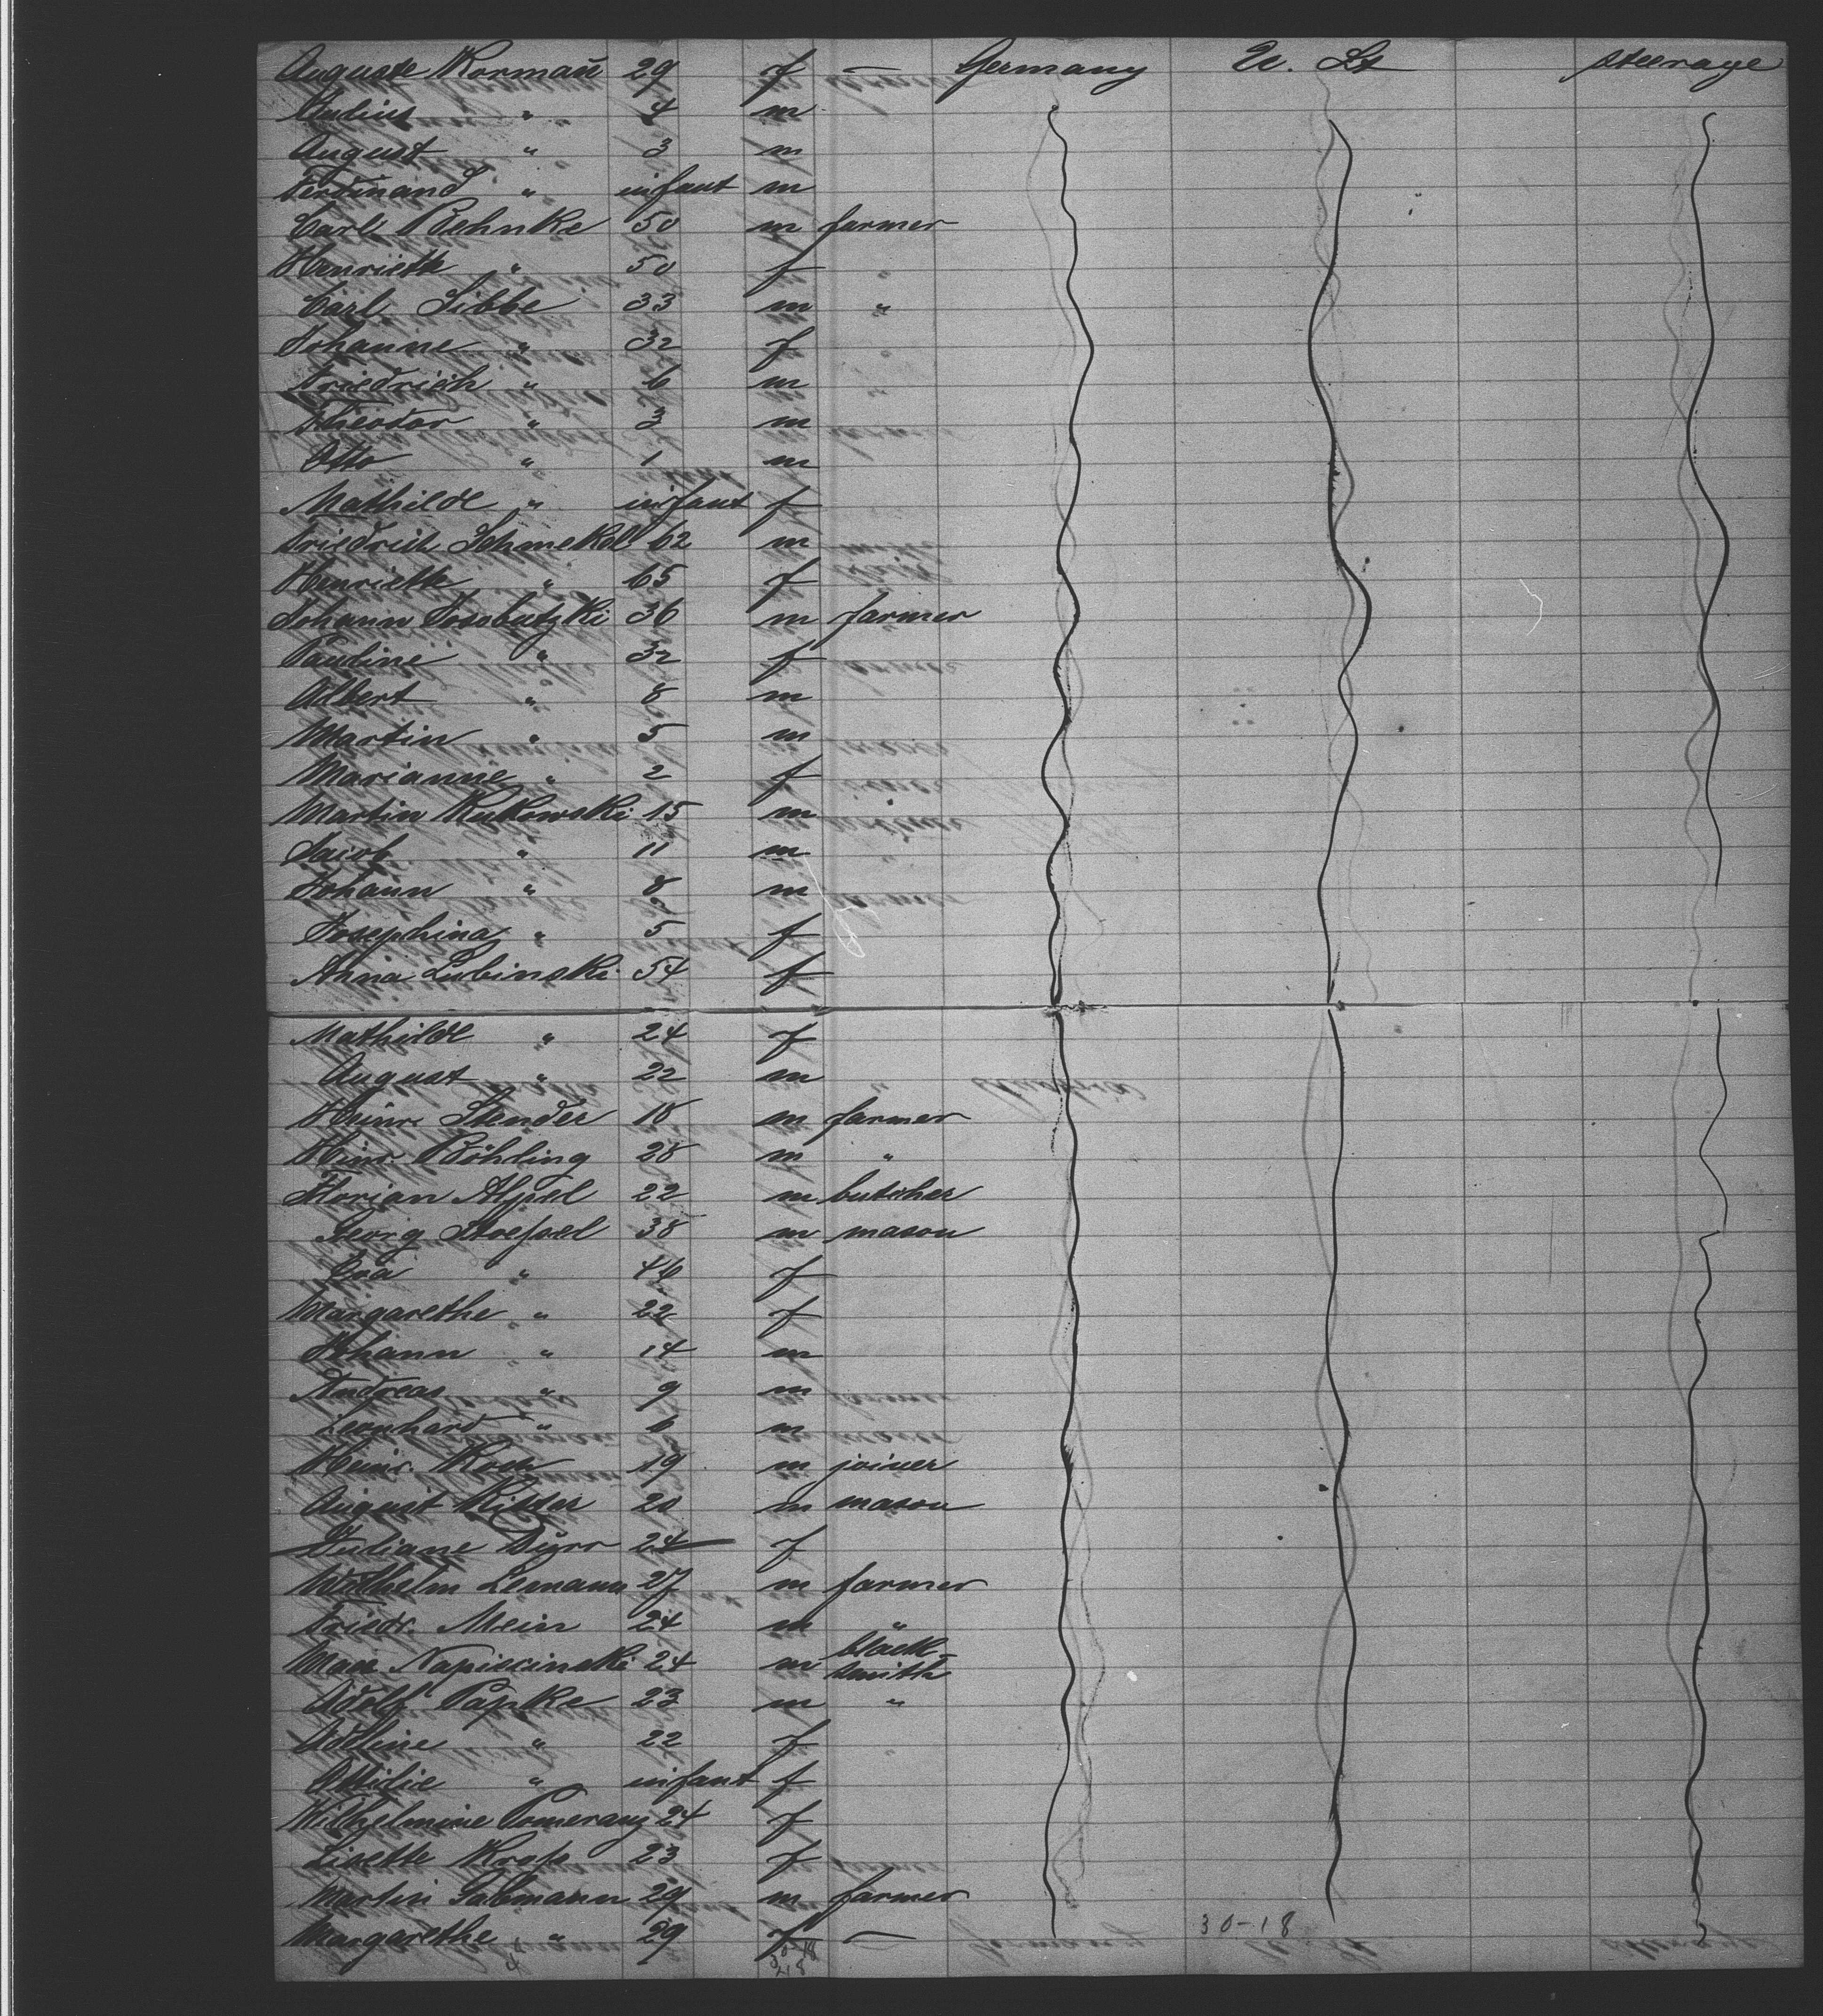 Auguste Kormañ 29 f — Germany U. St steerage
Julius " 4 m
August " 3 m
Ferdinand " infant m
Carl Behnke 50 m farmer
Henriette " 50 f "
Carl Libbe 33 m "
Johanne " 32 f
Friedrich " 6 m
Theodor " 3 m
Otto " 1 m
Mathilde " infant f
Friedrich Schmekel 62 m
Henriette " 65 f
Johann 36 m farmer
Pauline " 32 f
Albert " 8 m
Martin " 5 m
Marianne " 2 f
Martin Kukowski 15 m
Jacob " 11 m
Johann " 8 m
Josephina " 5 f
Anna Lubinski 54 f
Mathilde " 24 f
August " 22 m
Heinr. Stender 18 m farmer
Hinr. Böhling 28 m "
Florian 22 m butcher
Georg 38 m mason
Eva " 46 f
Margarethe " 22 f
Johann " 14 m
Andreas " 9 m
Leonhard " 6 m
Heinr. Koch 19 m joiner
August Ritter 20 m mason
Juliane 24 f
Wilhelm Lemann 27 m farmer
Friedr. Mein 24 m "
24 m black-
smith
Adolf Papke 23 m "
Adline " 22 f
Ottilie " infant f
Wilhelmine Pomeranz 24 f
Lisette 23 f
Martin 29 m farmer
Margarethe " 29 f —
30-18
30-18
48